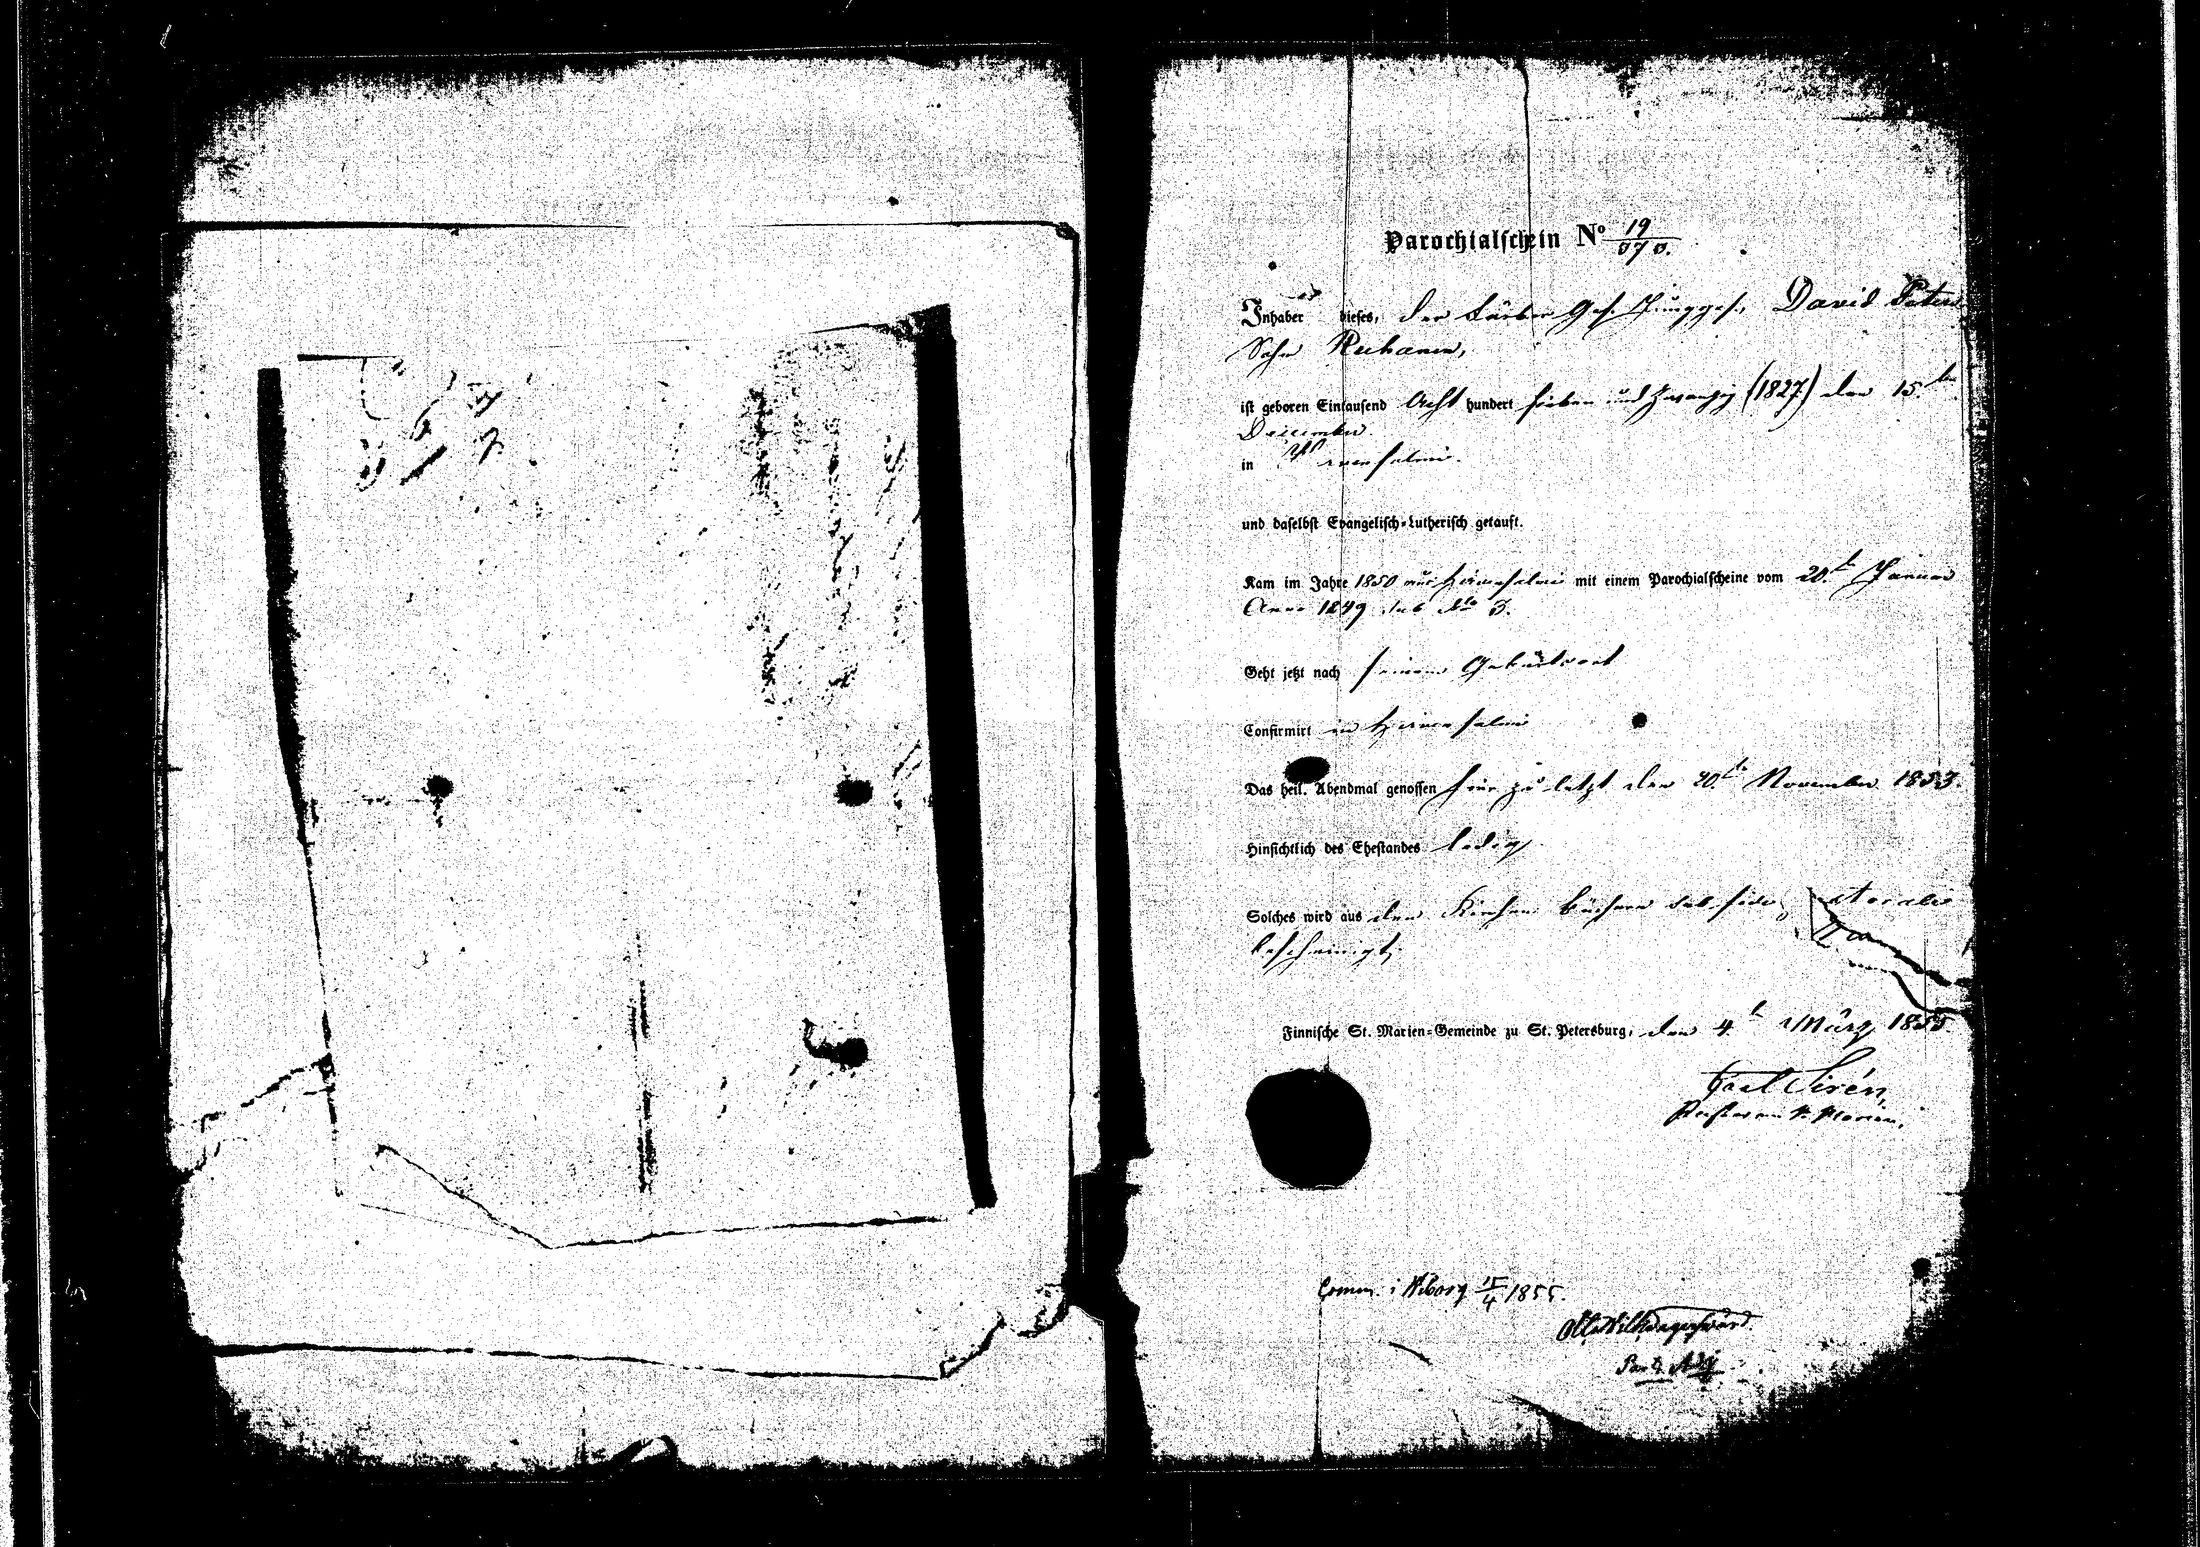 Parochialschein No 19/070.
Inhaber dieses, der Färber Ges. Junggef., David Peters
Sohn Reehanen,
ist geboren Eintausend Acht hundert sieben und zwanzig (1827) den 15ten
December
in
und daselbst Evangelisch-Lutherisch getauft.
Kam im Jahre 1850 aus mit einem Parochialscheine vom 20.ten Januar
Anno 1849 sub No 3.
Geht jetzt nach seinem Geburtsort
Confirmirt in
Das heil. Abendmal genossen hier zu letzt den 20.ten November 1853.
Hinsichtlich des Ehestandes ledig.
Solches wird aus den Kirchen Büchern sub fide
bescheinigt.
Finnische St. Marien-Gemeinde zu St. Petersburg, den 4.ten März 1855.
Carl Sirén,
Pastor an St. Marien.
Comm. i Wiborg 15/4 1855.
Past. Adj